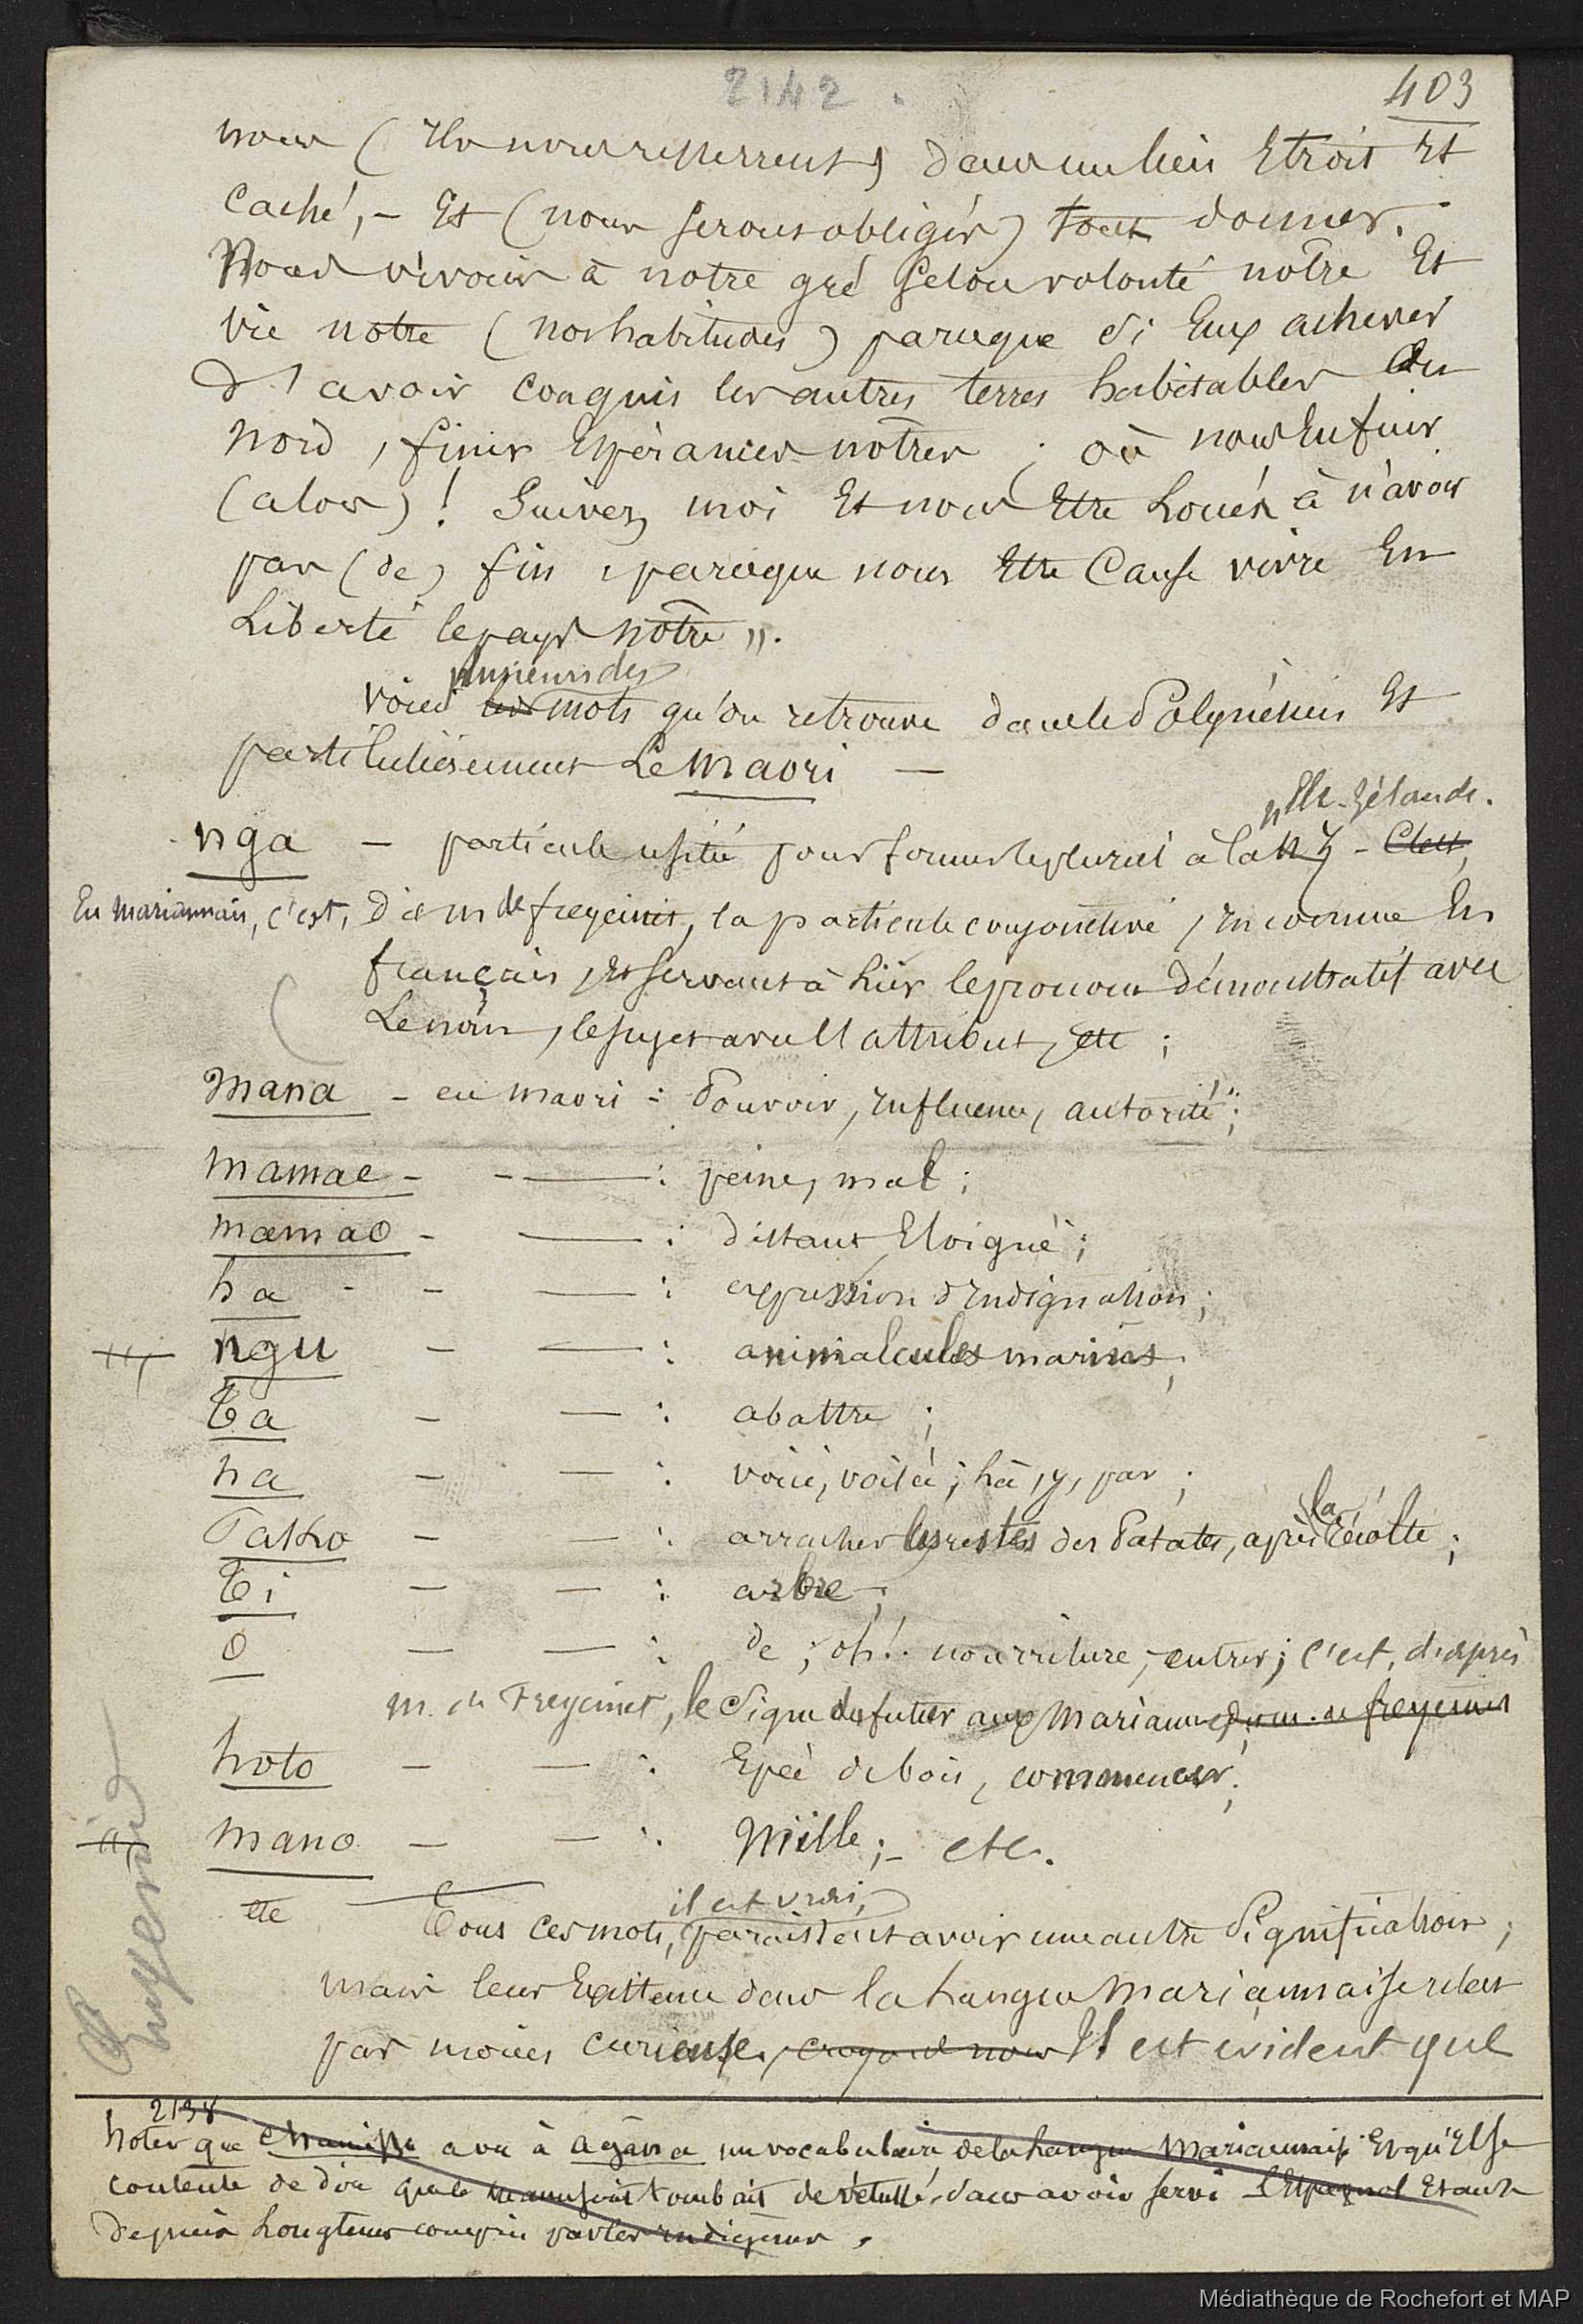 2142.
403
nous (Ils nous resserrent) dans un lieu Etroit Et
caché, - Et (nous serons obligés) tout donner.
Nous vivons à notre gré selon volonté notre Et
vie notre (nos habitudes) parceque si Eux achever
d'avoir conquis les autres terres habitables du
nord, finir Espérances notres ; où nous Enfuir
(alors) ! Suivez moi Et nous Etre Loués à n'avoir
pas (de) fin, parceque nous Etre Cause vivre En
Liberté le pays notre ».
plusieurs des
voici les mots qu'on retrouve dans le Polynésien Et
particulièrement Le Maori —
nlle-Zélande.
nga — particule usitée pour former le pluriel à la n Z - C'est,
En mariannais, c'est, d'ap m de freycinet, la particule conjonctive, inconnue En
français, Et servant à lier le pronom démonstratif avec
Le nom, le sujet avec l'attribut, etc ;
Mana - en maori : Pouvoir, Influence, autorité ;
mamae - - — : peine, mal ;
mamao - — : distant, Eloigné ;
ha - - — : expression d'Indignation ;
ngu - — : animalcules marins ;
Ta - — : abattre ;
na - — : voici, voilà ; là, y, par ;
la
Tatko - — : arracher les restes des Patates, après récolte ;
Ti — — : arbre ;
o — — : de ; oh ! nourriture, entrer ; c'est, d'après
m. de Freycinet, le Signe du futur aux Mariannes, d'ap. m. de freycinet
hoto — — : Epée de bois, commencer ;
mano — — : Mille ; - etc.
etc
il est vrai,
Tous ces mots, paraissent avoir une autre Signification ;
mais leur Existence dans la Langue Mariannaise n'est
pas moins curieuse, croyons nous Il est évident que
2138
Noter que Chamisso a vu à Agana un vocabulaire de la Langue Mariannaise Et qu'Il se
contente de dire que le manuscrit tombait de vétusté, sans avoir servi l'Espagnol Etant
depuis Longtems compris par les indigènes.
Médiathèque de Rochefort et MAP